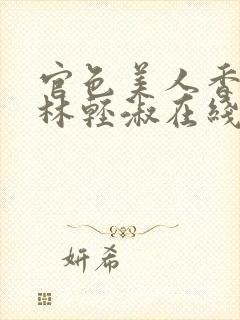 官色美人香
林轻淑在綫
妍希